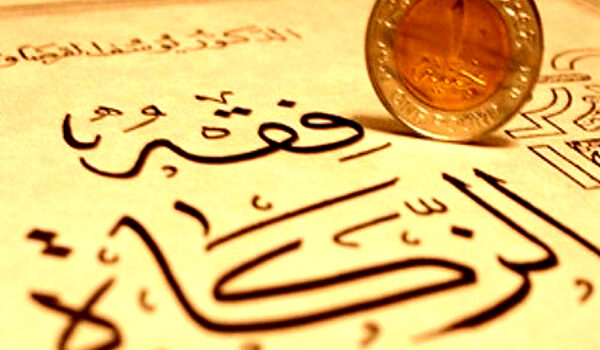 الدكتور يوسف القرضاوي
فقه
الزكاة